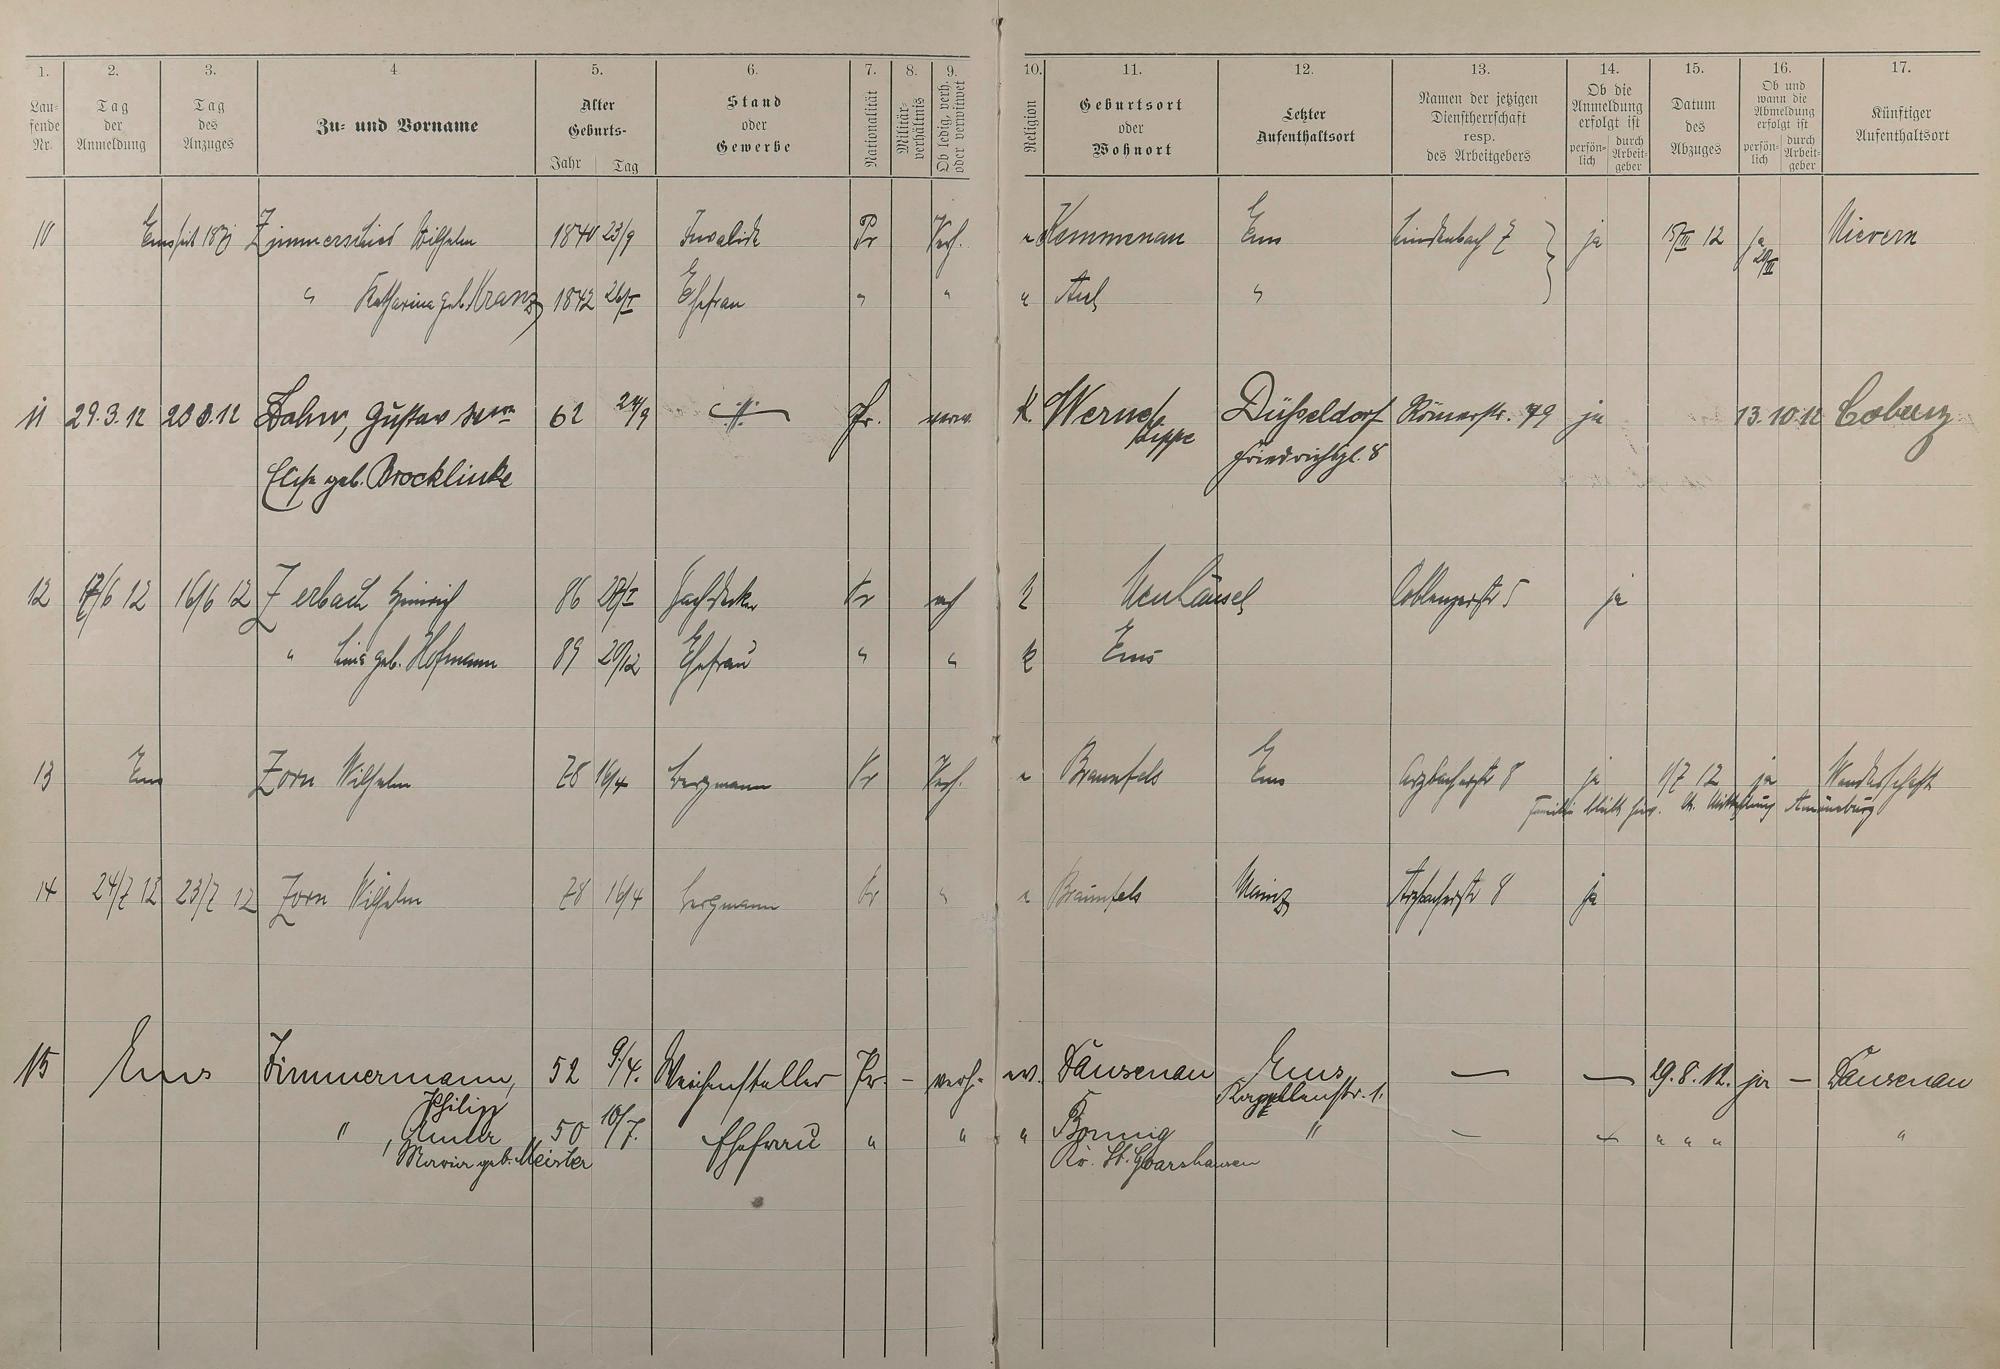 1. 2. 3. 4 5. 6. 7. 8. 9. 10. 11. 12. 13. 14. 15. 16. 17.
Lau-
fende
Nr.
Tag
der
Anmeldung
Tag
des
Anzuges
Zu- und Vorname
Alter
Geburts-
Jahr Tag
Stand
oder
Gewerbe
Nationalität
Militär-
verhältnis
Ob ledig, verh.
oder verwitwet
Religion
Geburtsort
oder
Wohnort
Letzter
Aufenthaltsort
Namen der jetzigen
Dienstherrschaft
resp.
des Arbeitgebers
Ob die
Anmeldung
erfolgt ist
persön-
lich
durch
Arbeit-
geber
Datum
des
Abzuges
Ob und
wann die
Abmeldung
erfolgt ist
persön-
lich
durch
Arbeit-
geber
Künftiger
Aufenthaltsort
10 Ems seit Zimmerschied Wilhelm 1840 23/9 Invalide Pr Verh. Kemmenau Ems Lindenbach 7 ja 15/III 12 ja Nievern
20/III
" Katharina geb. Kranz 1842 26/I Ehefrau " " " "
11 29.3.12 Gustav 62 24/9 Pr. verw. K. Werne/ Düsseldorf Römerstr. 79 ja 13.10.12 Coblenz
Lippe Friedrichspl. 8
Elise geb. Brocklinke
12 17/6 12 16/6 12 Zerbach Heinrich 86 Dachdecker Pr vh k Neuhäusel Coblenzerstr 5 ja
" Lina geb. Hofmann 89 20/12 Ehefrau " " k Ems
13 Ems Zorn Wilhelm 78 16/4 Bergmann Pr Verh. Braunfels Ems Arzbacherstr 8 ja 1/7 12 ja Wanderschaft
Familie bleibt hier.
14 24/7 12 23/7 12 Zorn Wilhelm 78 16/4 Bergmann Pr " Braunfels Mainz Arzbacherstr 8 ja
15 Ems Zimmermann, 52 9/4. Weichensteller Pr. – verh. ev. Dausenau Ems — — 29.8.12. ja – Dausenau
Philipp Kapellenstr. 1.
" , 50 10/7. Ehefrau " " " Bornig " – " " " "
Maria geb. Meister Kr. St. Goarshausen